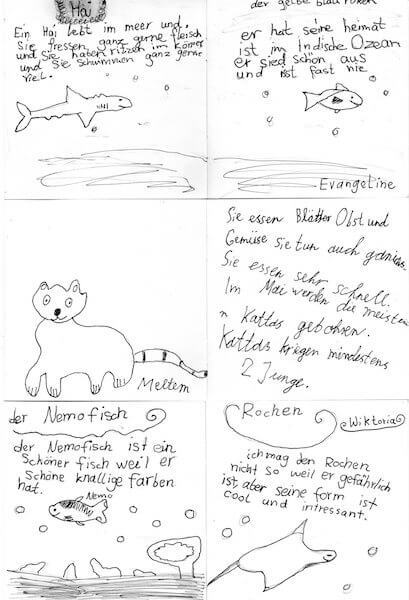 Hai
Ein Hai lebt im meer und.
Sie fressen ganz gerne fleisch
und Sie haben ritzen im körper
und Sie schwimmen ganz gerne
viel.
der gelbe blau
er hat seine heimat
ist im Indische Ozean
er sied schön aus
und ist fast nie
Evangeline
Meltem
Sie essen Blätter Obst und
Gemüse Sie tun auch
Sie essen sehr schnell.
Im Mai werden die meisten
n Kattas gebohren.
Kattas kriegen mindestens
2 Junge.
der Nemofisch
der Nemofisch ist ein
Schöner fisch weil er
Schöne knallige farben
hat.
Nemo
Rochen
Wiktoria
ich mag den Rochen
nicht so weil er gefährlich
ist, aber seine form ist
cool und intressant.